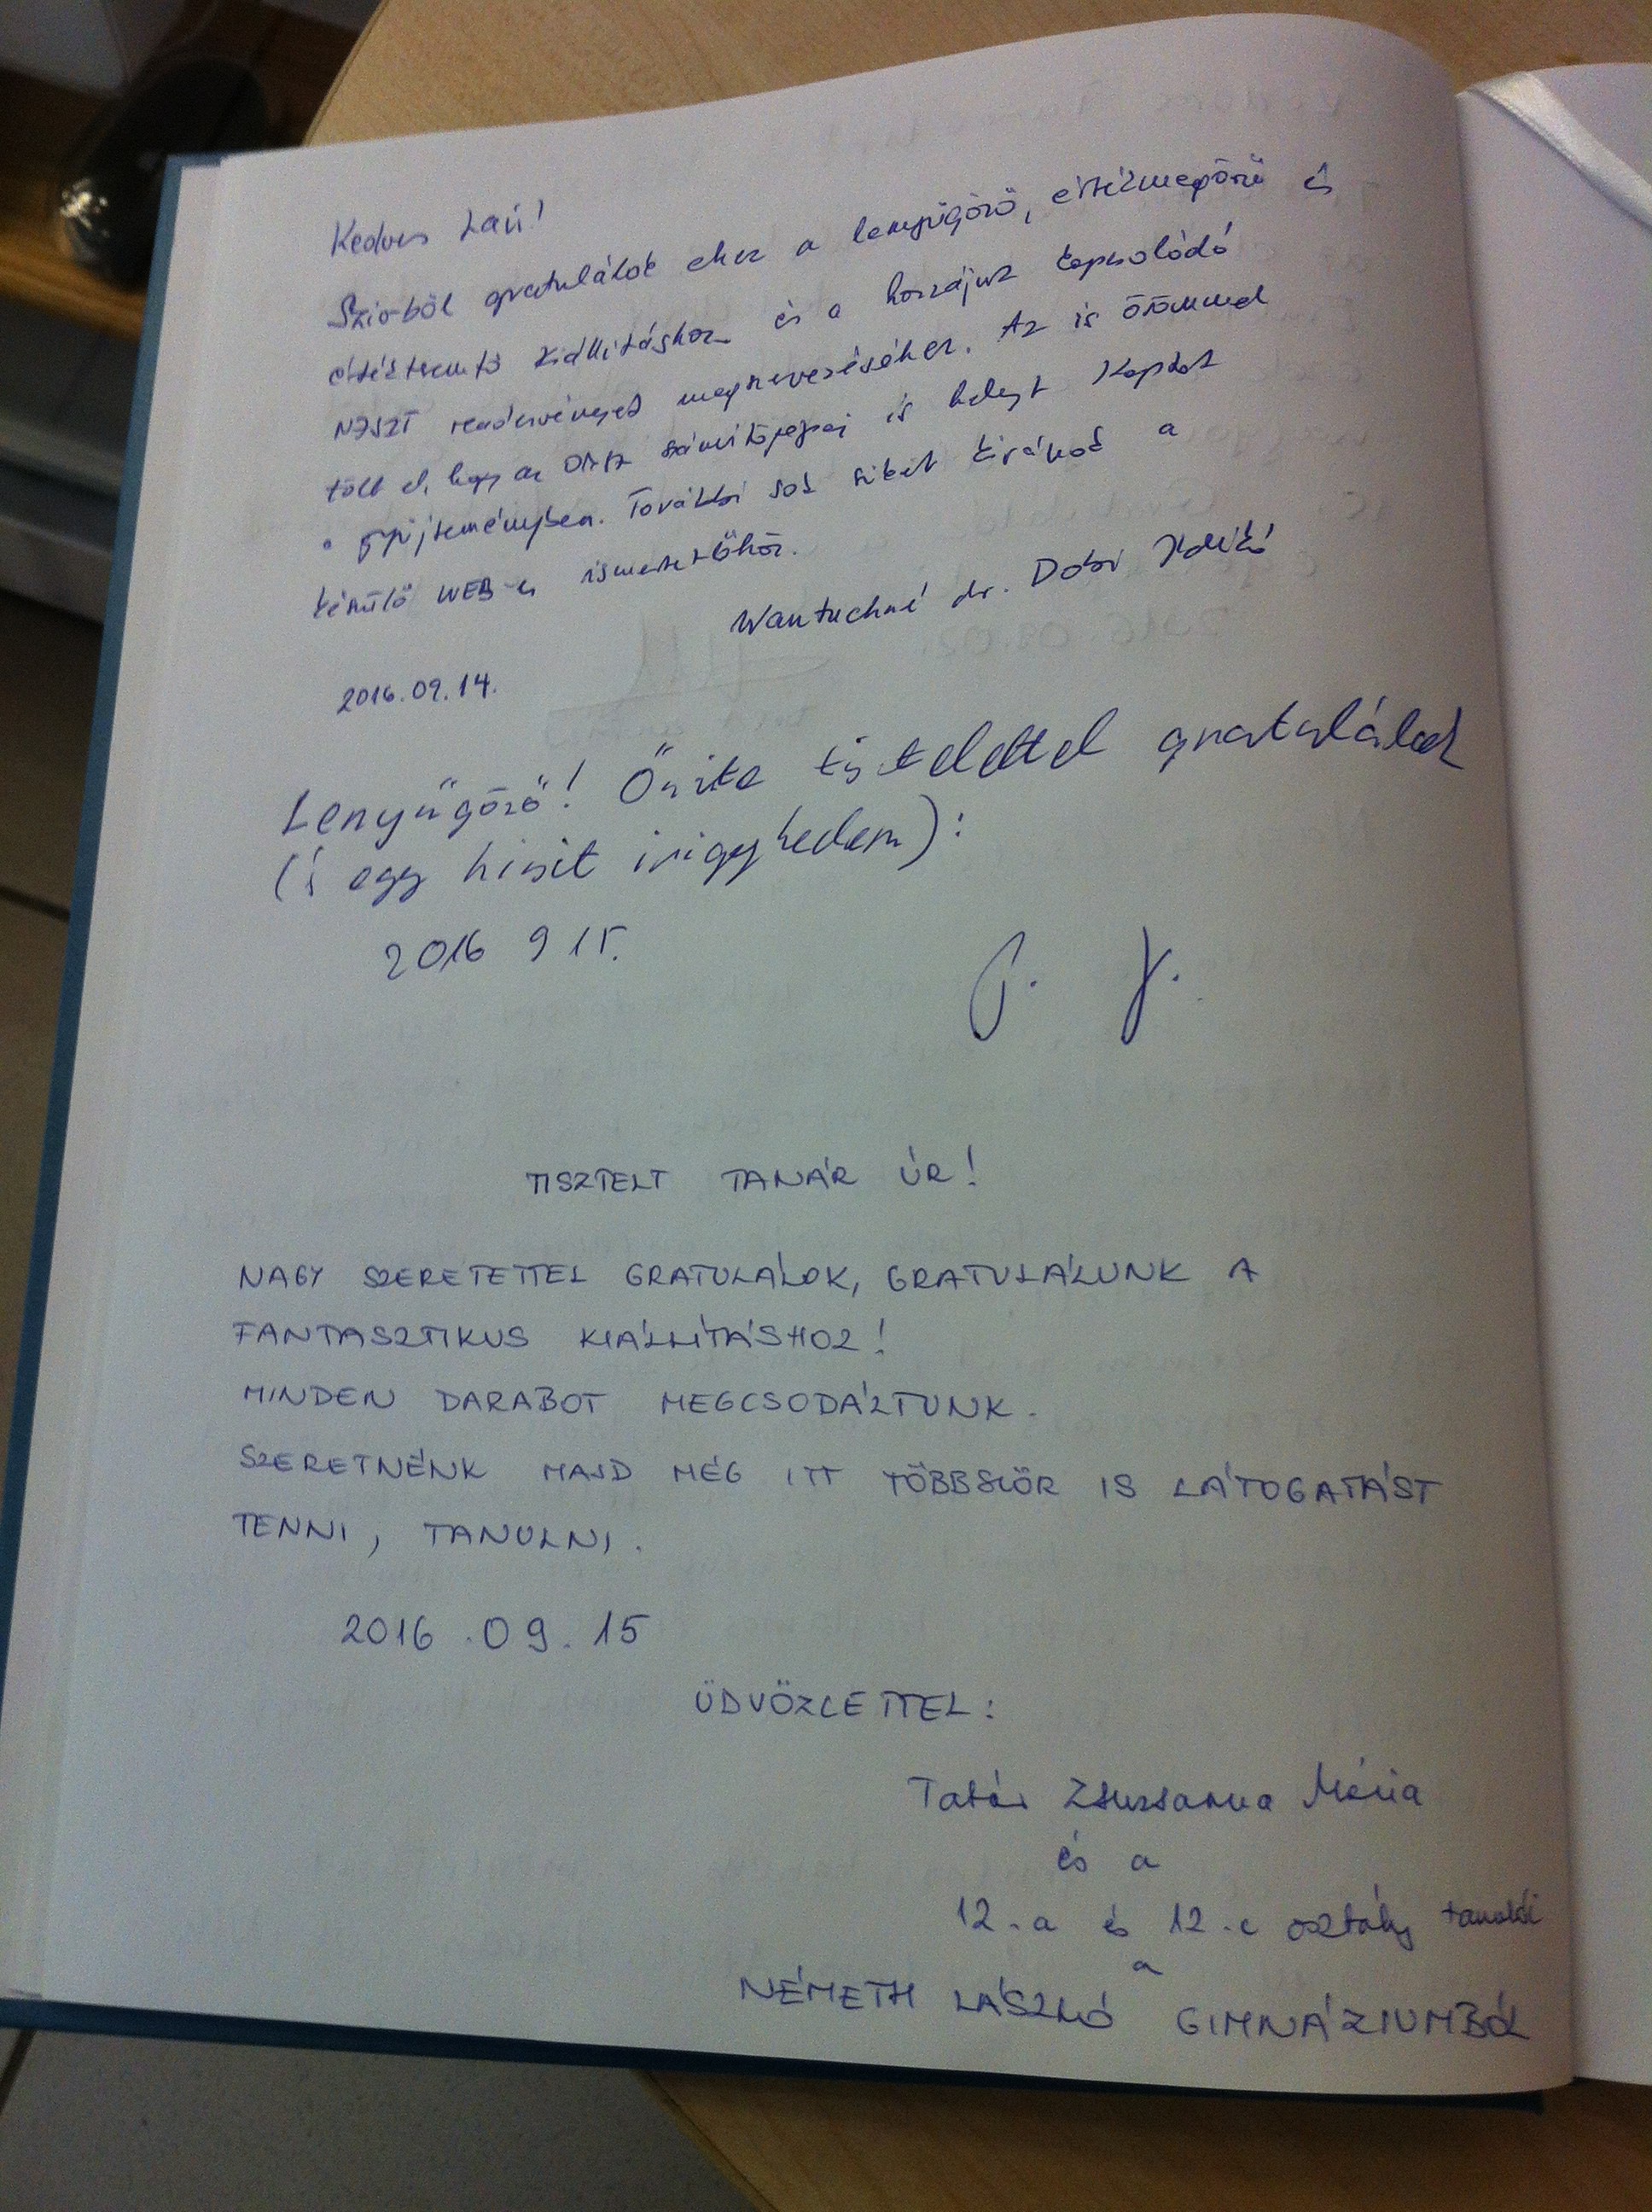 Kedves Laci!
Szívből gratulálok ehez a lenyűgöző, értékmegőrző és
értékteremtő kiállításhoz és a hozzájuk kapcsolódó
NJSZT rendezvények megszervezéséhez. Az is örömmel
tölt el, hogy az számítógépei is helyet kaptak
a gyűjteményben. További sok sikert kívánok a
készülő WEB-es ismertetőhöz.
Wantuchné dr. Dobi Ildikó
2016.09.14.
Lenyűgöző! Őszinte tisztelettel gratulálok
(s egy kicsit irigykedem):
2016 9 15.
TISZTELT TANÁR ÚR!
NAGY SZERETETTEL GRATULÁLOK, GRATULÁLUNK A
FANTASZTIKUS KIÁLLÍTÁSHOZ!
MINDEN DARABOT MEGCSODÁLTUNK.
SZERETNÉNK MAJD MÉG ITT TÖBBSZÖR IS LÁTOGATÁST
TENNI, TANULNI.
2016.09.15
ÜDVÖZLETTEL:
Tatár Zsuzsanna Mária
és a
12.a és 12.c osztály tanulói
a
NÉMETH LÁSZLÓ GIMNÁZIUMBÓL